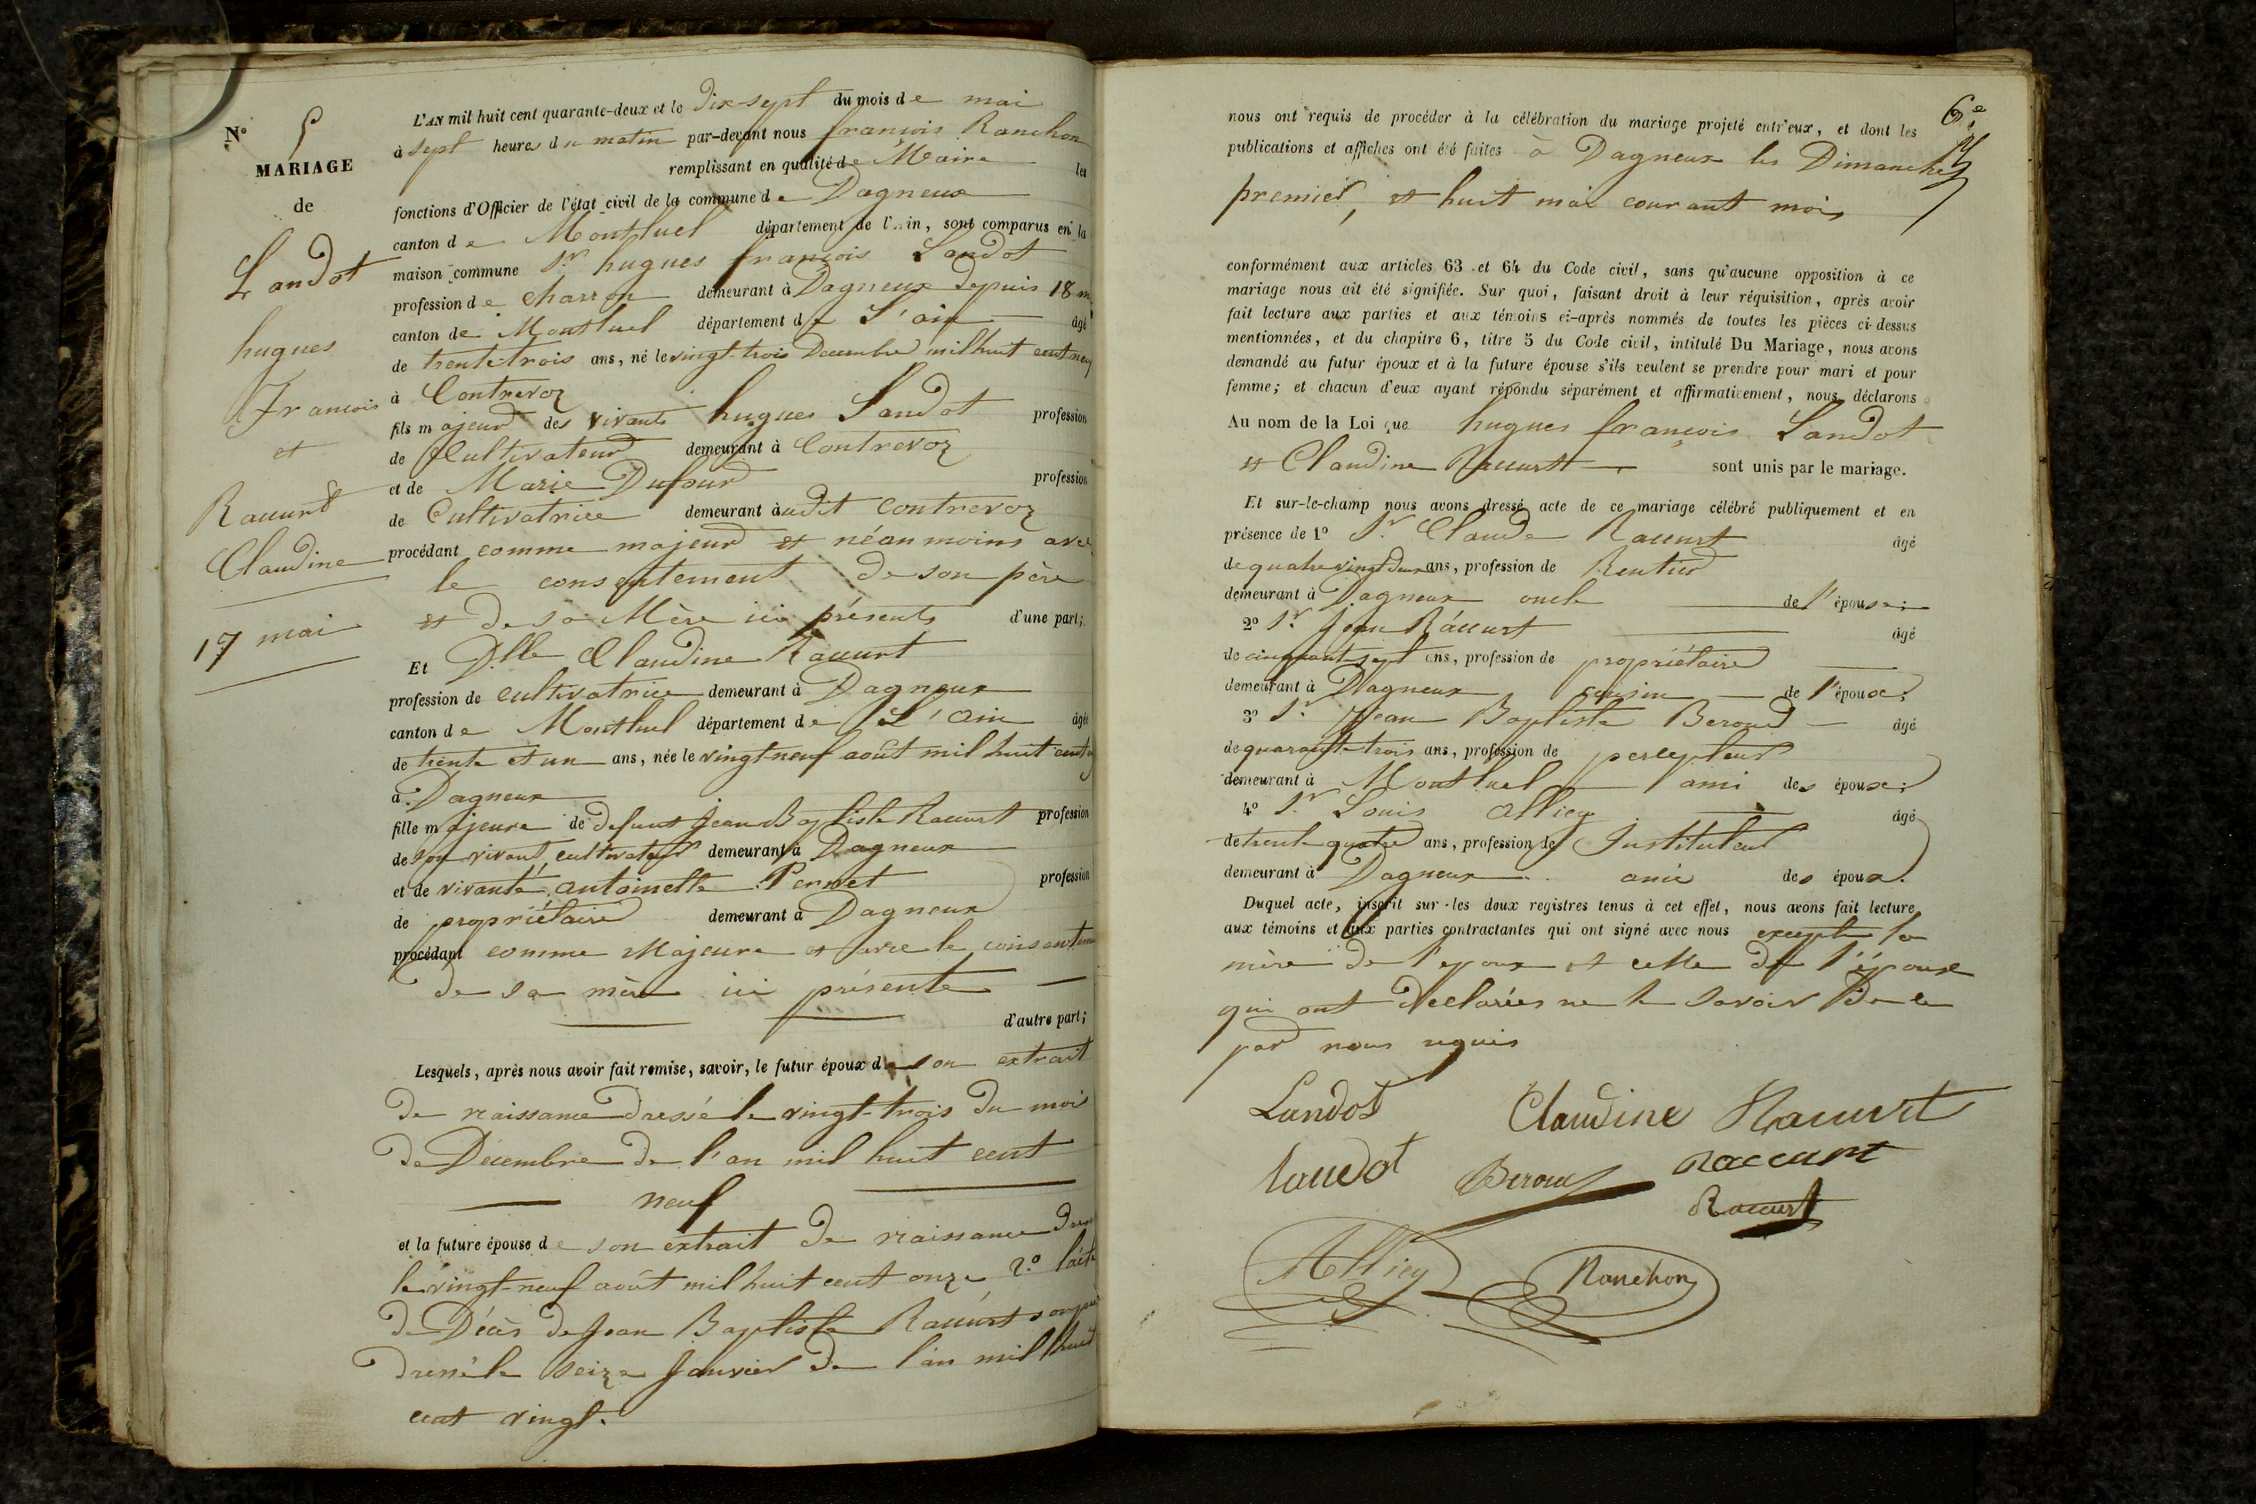 N° 5
MARIAGE
de
Landot
hugues
François
et
Racurt
Claudine
17 mai
L'AN mil huit cent quarante-deux et le dix-sept du mois de mai
à sept heures du matin par-devant nous françois Ranchon
remplissant en qualité de Maire les
fonctions d'Officier de l'état civil de la commune de Dagneux
canton de Montluel département de l'Ain, sont comparus en la
maison commune Sr. hugues françois Landot
profession de charron demeurant à Dagneux depuis 18 m
canton de Montluel département de L'ain âgé
de trente-trois ans, né le vingt-trois Decembre mil huit cent neuf
à Contrevoz
fils majeur des vivants hugues Landot profession
de Cultivateur demeurant à Contrevoz
et de Marie Dufour profession
de Cultivatrice demeurant audit contrevoz
procédant comme majeur et néanmoins avec
le consentement de son père
et de sa Mère ici présents d'une part;
Et Dlle Claudine Racurt
profession de cultivatrice demeurant à Dagneux
canton de Montluel département de L'ain âgée
de trente et un ans, née le vingt-neuf août mil huit cent
à Dagneux
fille majeure de défunt Jean Baptiste Racurt profession
de son vivant cultivateur demeurant à Dagneux
et de vivante antoinette Pernet profession
de propriétaire demeurant à Dagneux
procédant comme Majeure et avec le consentem
de sa mère ici présente
d'autre part;
Lesquels, après nous avoir fait remise, savoir, le futur époux de son extrait
de naissance dressé le vingt-trois du mois
de Décembre de l'an mil huit cent
neuf
et la future épouse de son extrait de naissance dres
le vingt-neuf août mil huit cent onze 2° l'acte
de Décès de Jean Baptiste Racurt son père
dressé le seize Janvier de l'an mil huit
cent vingt.
6e
nous ont requis de procéder à la célébration du mariage projeté entr'eux, et dont les
publications et affiches ont été faites à Dagneux les Dimanches
premier, et huit mai courant mois
conformément aux articles 63 et 64 du Code civil, sans qu'aucune opposition à ce
mariage nous ait été signifiée. Sur quoi, faisant droit à leur réquisition, après avoir
fait lecture aux parties et aux témoins ci-après nommés de toutes les pièces ci-dessus
mentionnées, et du chapitre 6, titre 5 du Code civil, intitulé Du Mariage, nous avons
demandé au futur époux et à la future épouse s'ils veulent se prendre pour mari et pour
femme; et chacun d'eux ayant répondu séparément et affirmativement, nous déclarons
Au nom de la Loi que hugues françois Landot
et Claudine Racurt sont unis par le mariage.
Et sur-le-champ nous avons dressé acte de ce mariage célébré publiquement et en
présence de 1° Sr. Claude Racurt âgé
de quatrevingt deux ans, profession de Rentier
demeurant à Dagneux oncle de l'épouse;
2° Sr. Jean Racurt âgé
de cinquante sept ans, profession de propriétaire
demeurant à Dagneux cousin de l'épouse;
3° Sr. Jean Baptiste Beroud âgé
de quarante trois ans, profession de percepteur
demeurant à Montluel ami des époux;
4° Sr. Louis Alliey âgé
de trente quatre ans, profession de Instituteur
demeurant à Dagneux ami des époux.
Duquel acte, inscrit sur les doux registres tenus à cet effet, nous avons fait lecture
aux témoins et aux parties contractantes qui ont signé avec nous excepté la
mère de l'epoux et celle de l'épouse
qui ont declarées ne le savoir De ce
par nous requis
Landot
Claudine Racurt
Landot
Beroud
Raccurt
Racurt
Alliey
Ranchon